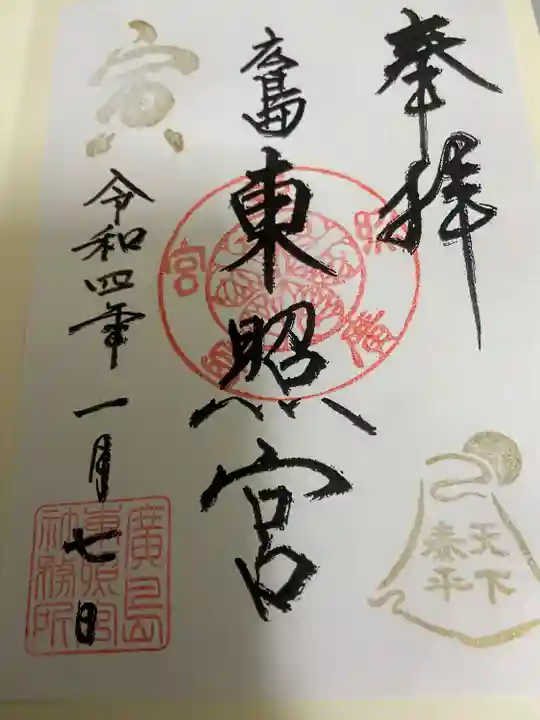 奉拝
広島
東照宮
寅
令和四年一月七日
廣島
東照宮
社務所
天下
泰平